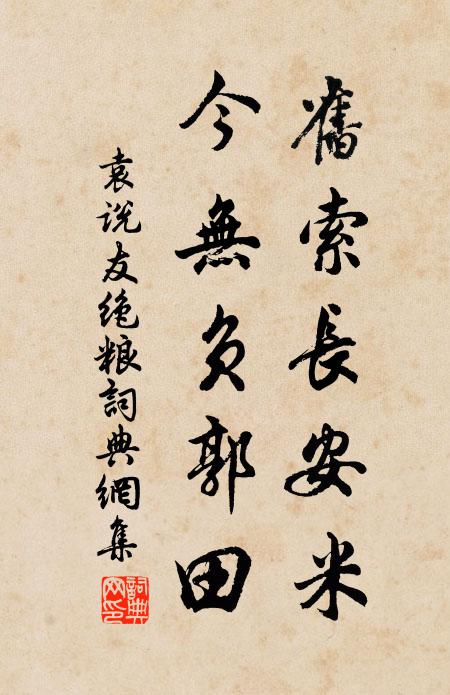 舊索長安米
今無負郭田
袁说友绝粮詞典網集
詞典網印